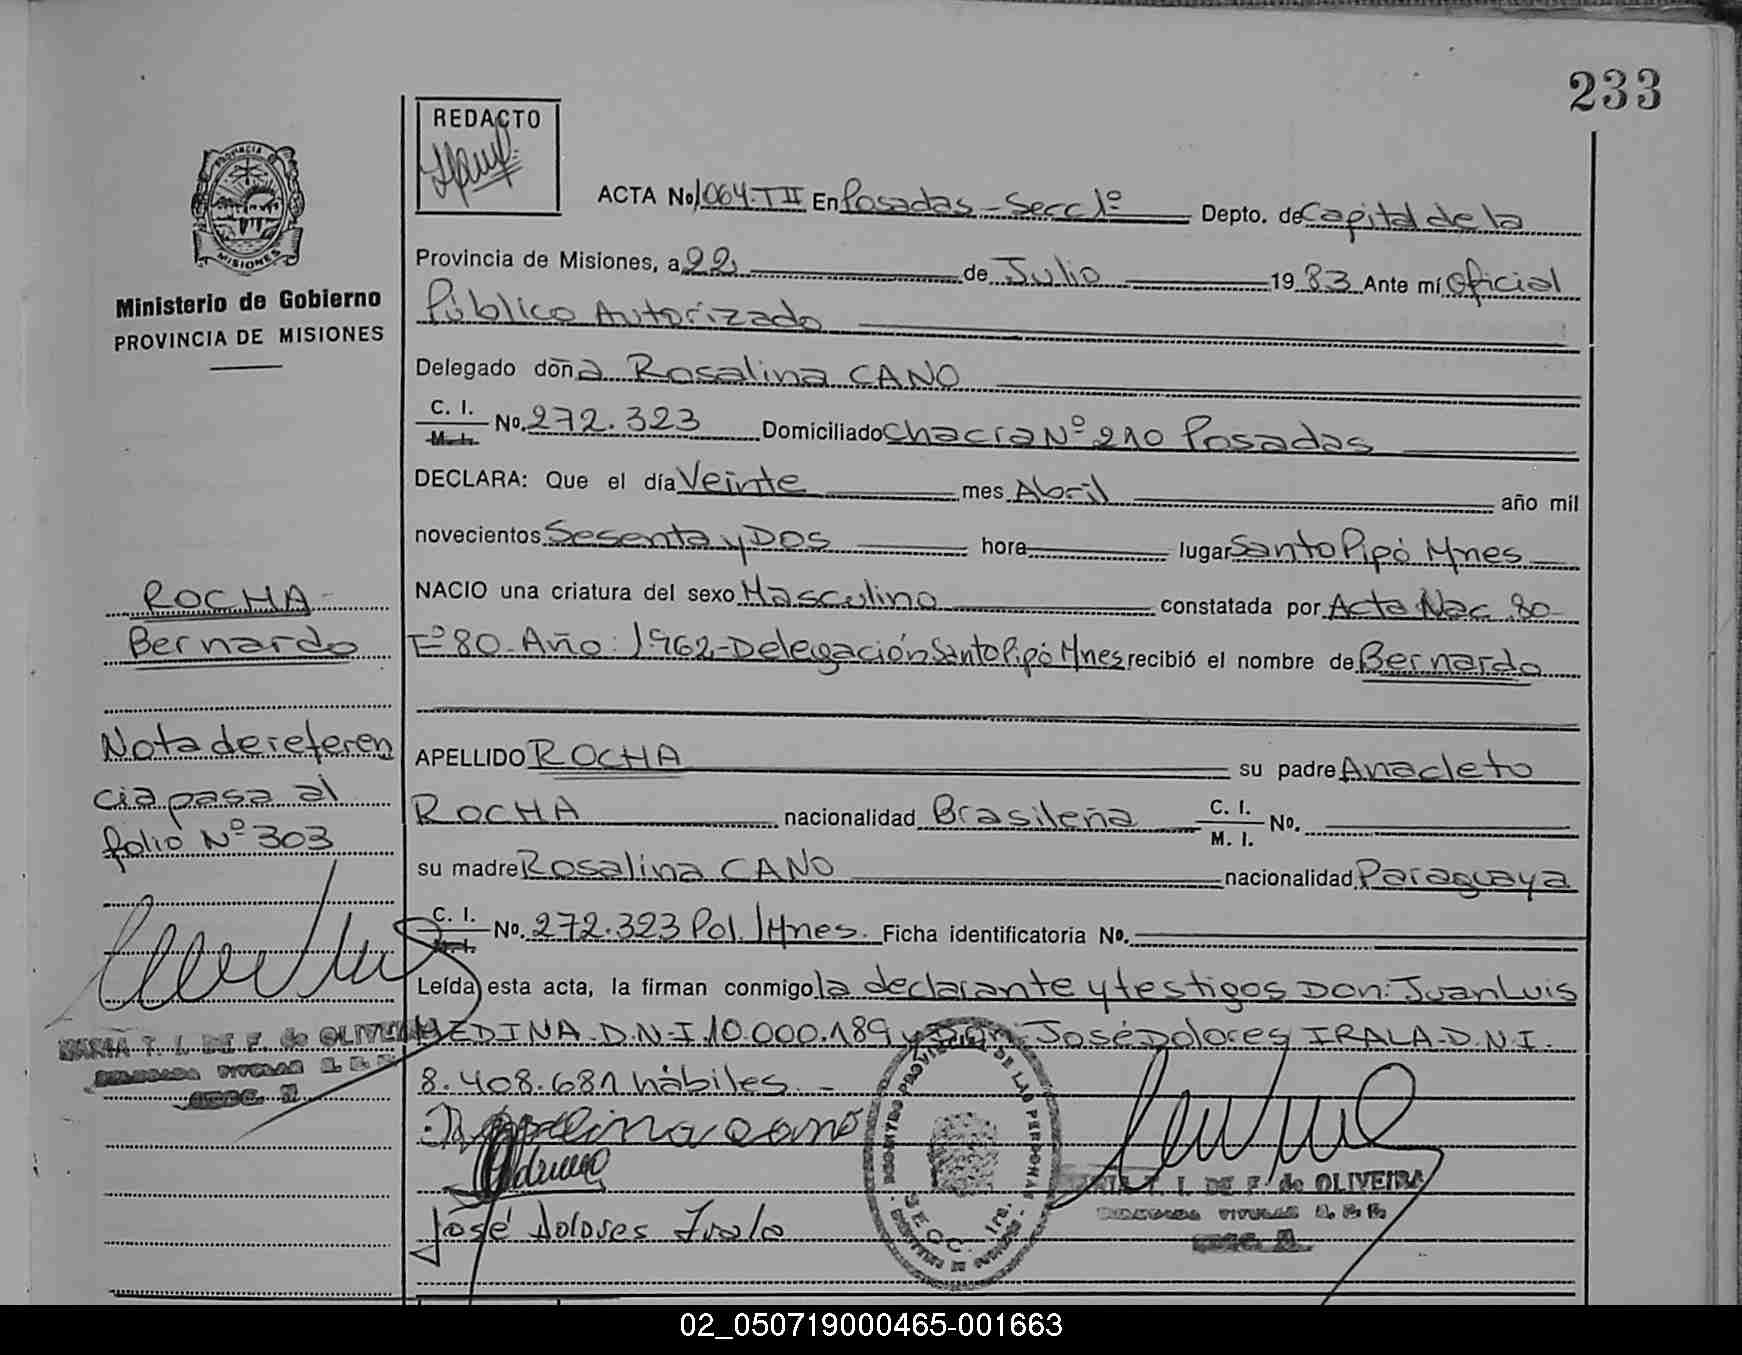 233
REDACTO
ACTA No 1064-TII En Posadas - Secc 1º Depto. de Capital de la
Provincia de Misiones, a 22 de Julio 1983 Ante mí Oficial
Público Autorizado
Delegado doña Rosalina CANO
C. I. M. I. No. 272.323 Domiciliado Chacra Nº 210 Posadas
DECLARA: Que el día Veinte mes Abril año mil
novecientos Sesenta y Dos hora lugar Santo Pipó Mnes
NACIO una criatura del sexo Masculino constatada por Acta Nac. 80
Fº 80- Año: 1962- Delegación Santo Pipó Mnes recibió el nombre de Bernardo
APELLIDO ROCHA su padre Anacleto
ROCHA nacionalidad Brasileña C. I. M. I. No.
su madre Rosalina CANO nacionalidad Paraguaya
C. I. M. I. No. 272.323 Pol. Mnes. Ficha identificatoria No.
Leída esta acta, la firman conmigo la declarante y testigos Don: Juan Luis
MEDINA. D.N.I. 10.000.189 y Don: José Dolores IRALA. D.N.I.
8.408.681 hábiles.-
Rosalina cano
José Dolores Irala
PROVINCIA DE
MISIONES
Ministerio de Gobierno
PROVINCIA DE MISIONES
ROCHA
Bernardo
Nota de referen
cia pasa al
folio Nº 303
MARIA T. I. DE F. de OLIVEIRA
REGISTRO PROVINCIAL DE LAS PERSONAS
SECC. 1ra.
MARIA T. I. DE F. de OLIVEIRA
02_050719000465-001663